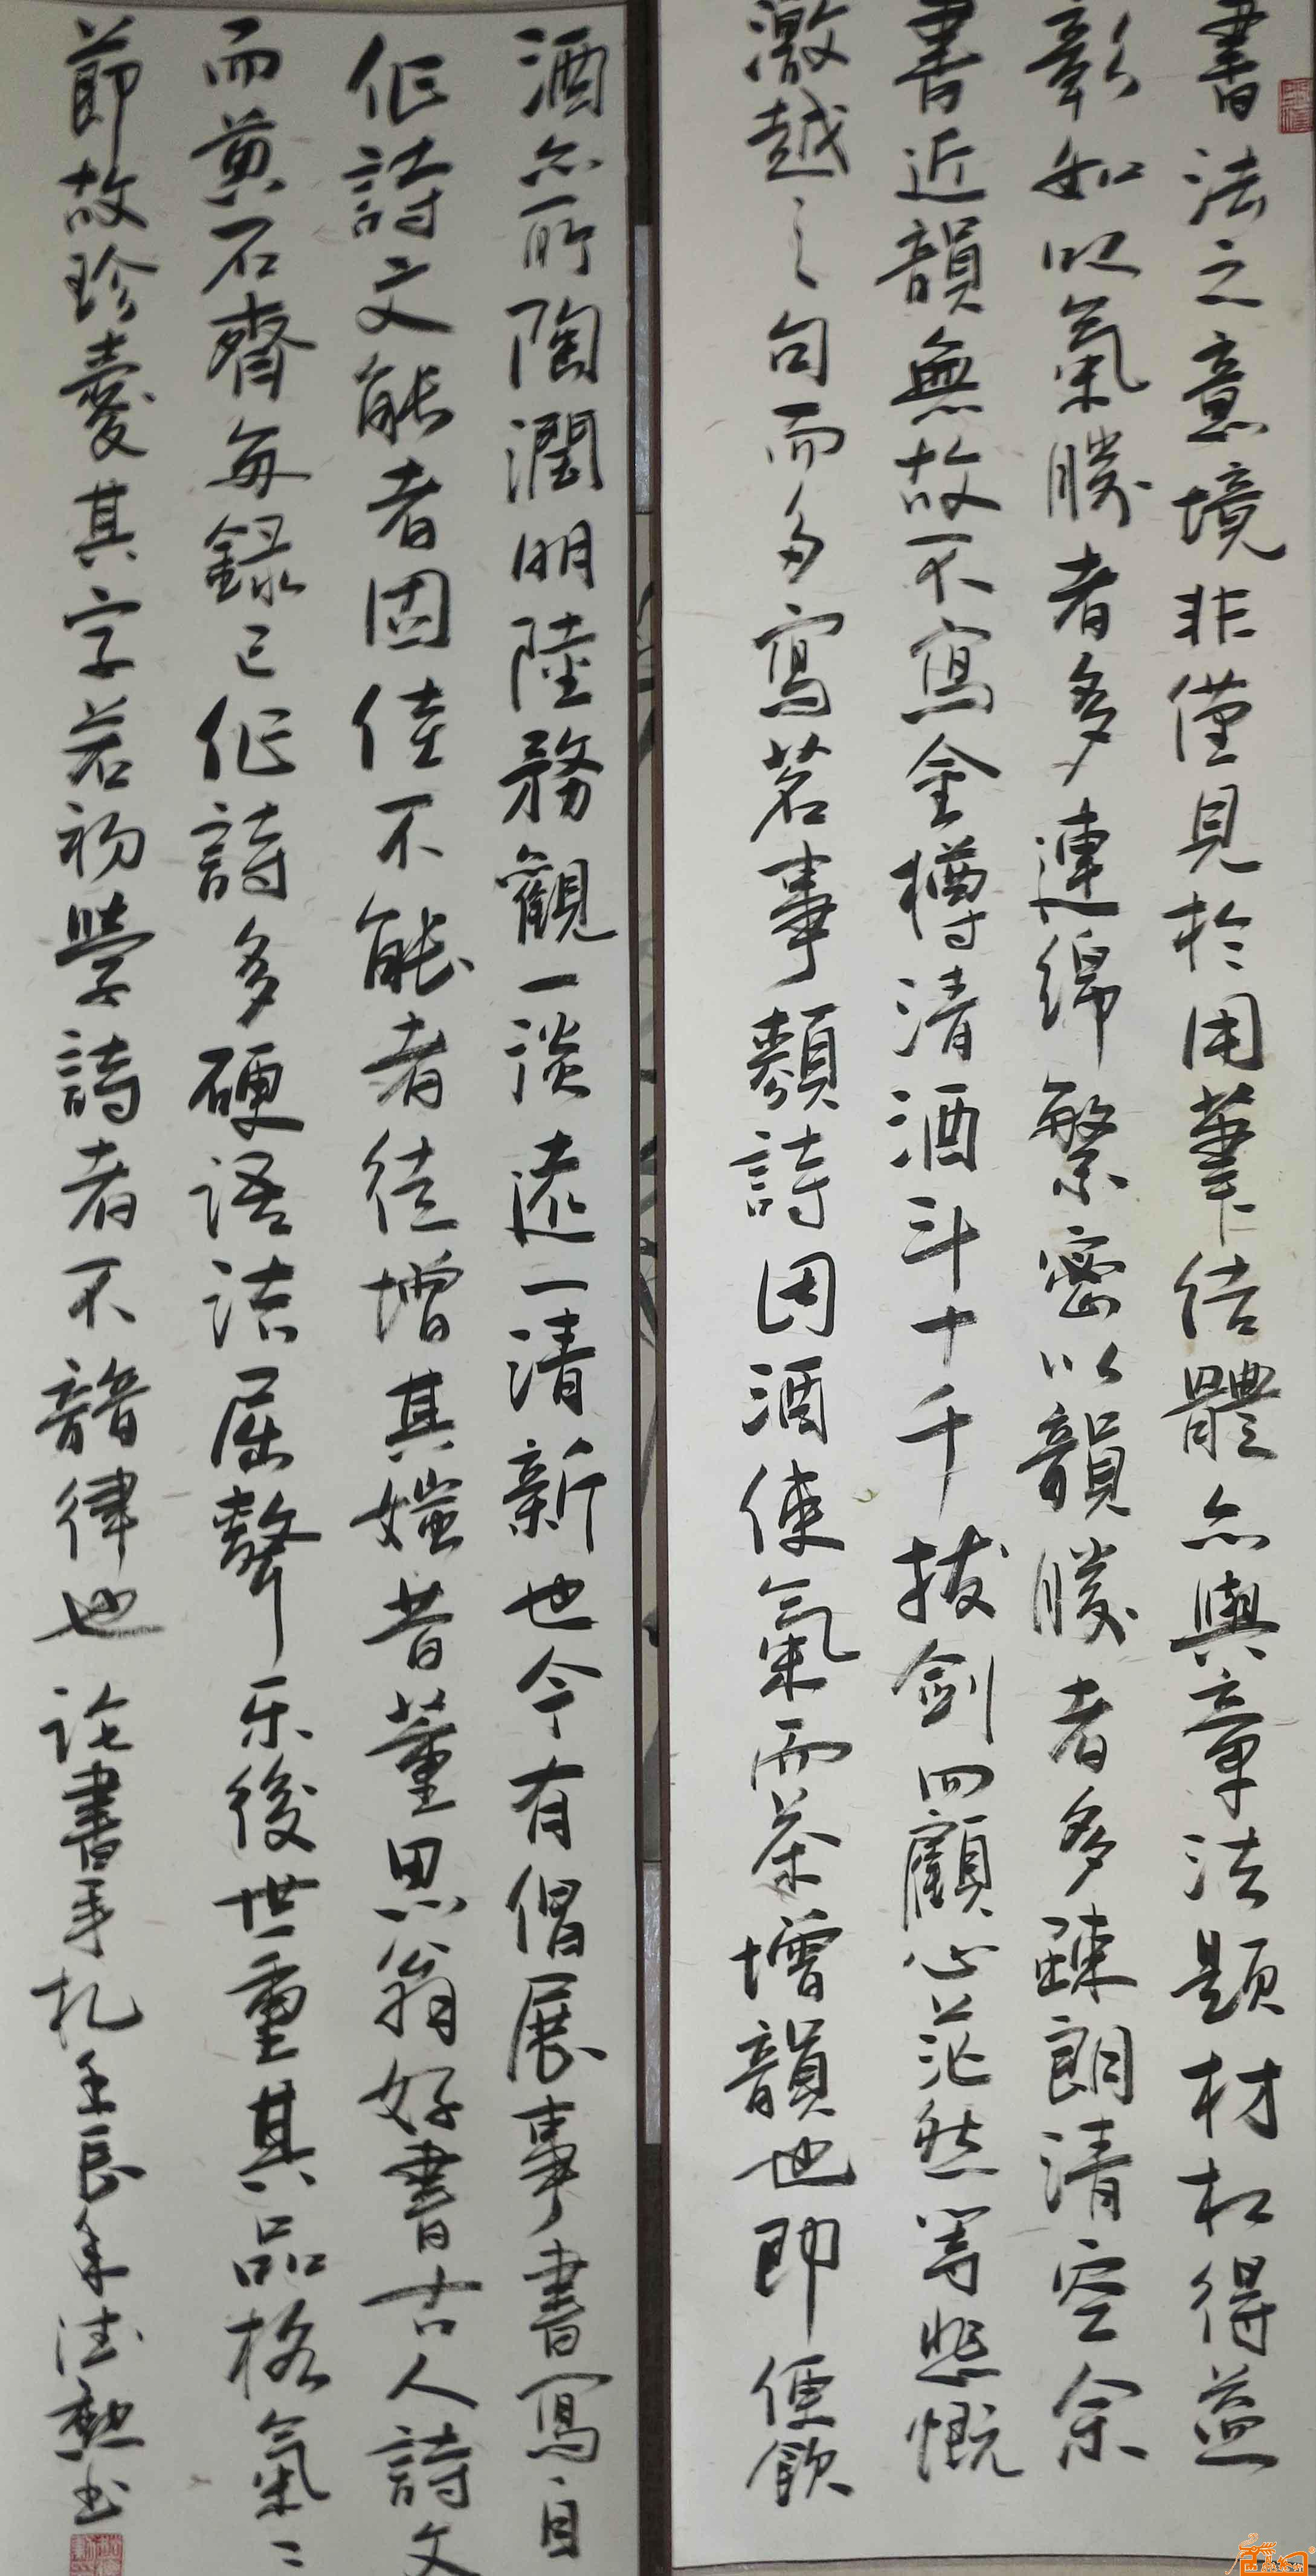 書法之意境非僅見於用筆結體亦與章法題材相得益
彰如以氣勝者多連綿繁密以韻勝者多疎朗清空余
書近韻無故不寫金樽清酒斗十千拔劍四顧心茫然等悲慨
激越之句而多寫茗事類詩因酒使氣而茶增韻也即便飲
酒亦所陶淵明陸務觀一淡遠一清新也今有倡展事書寫自
作詩文能者固佳不能者徒增其媸昔董思翁好書古人詩文
而黄石齋每錄己作詩多硬語詰屈聱乐後世重其品格氣〻
節故珍愛其字若初學詩者不諳律也 論書手札 壬辰年 德勲书